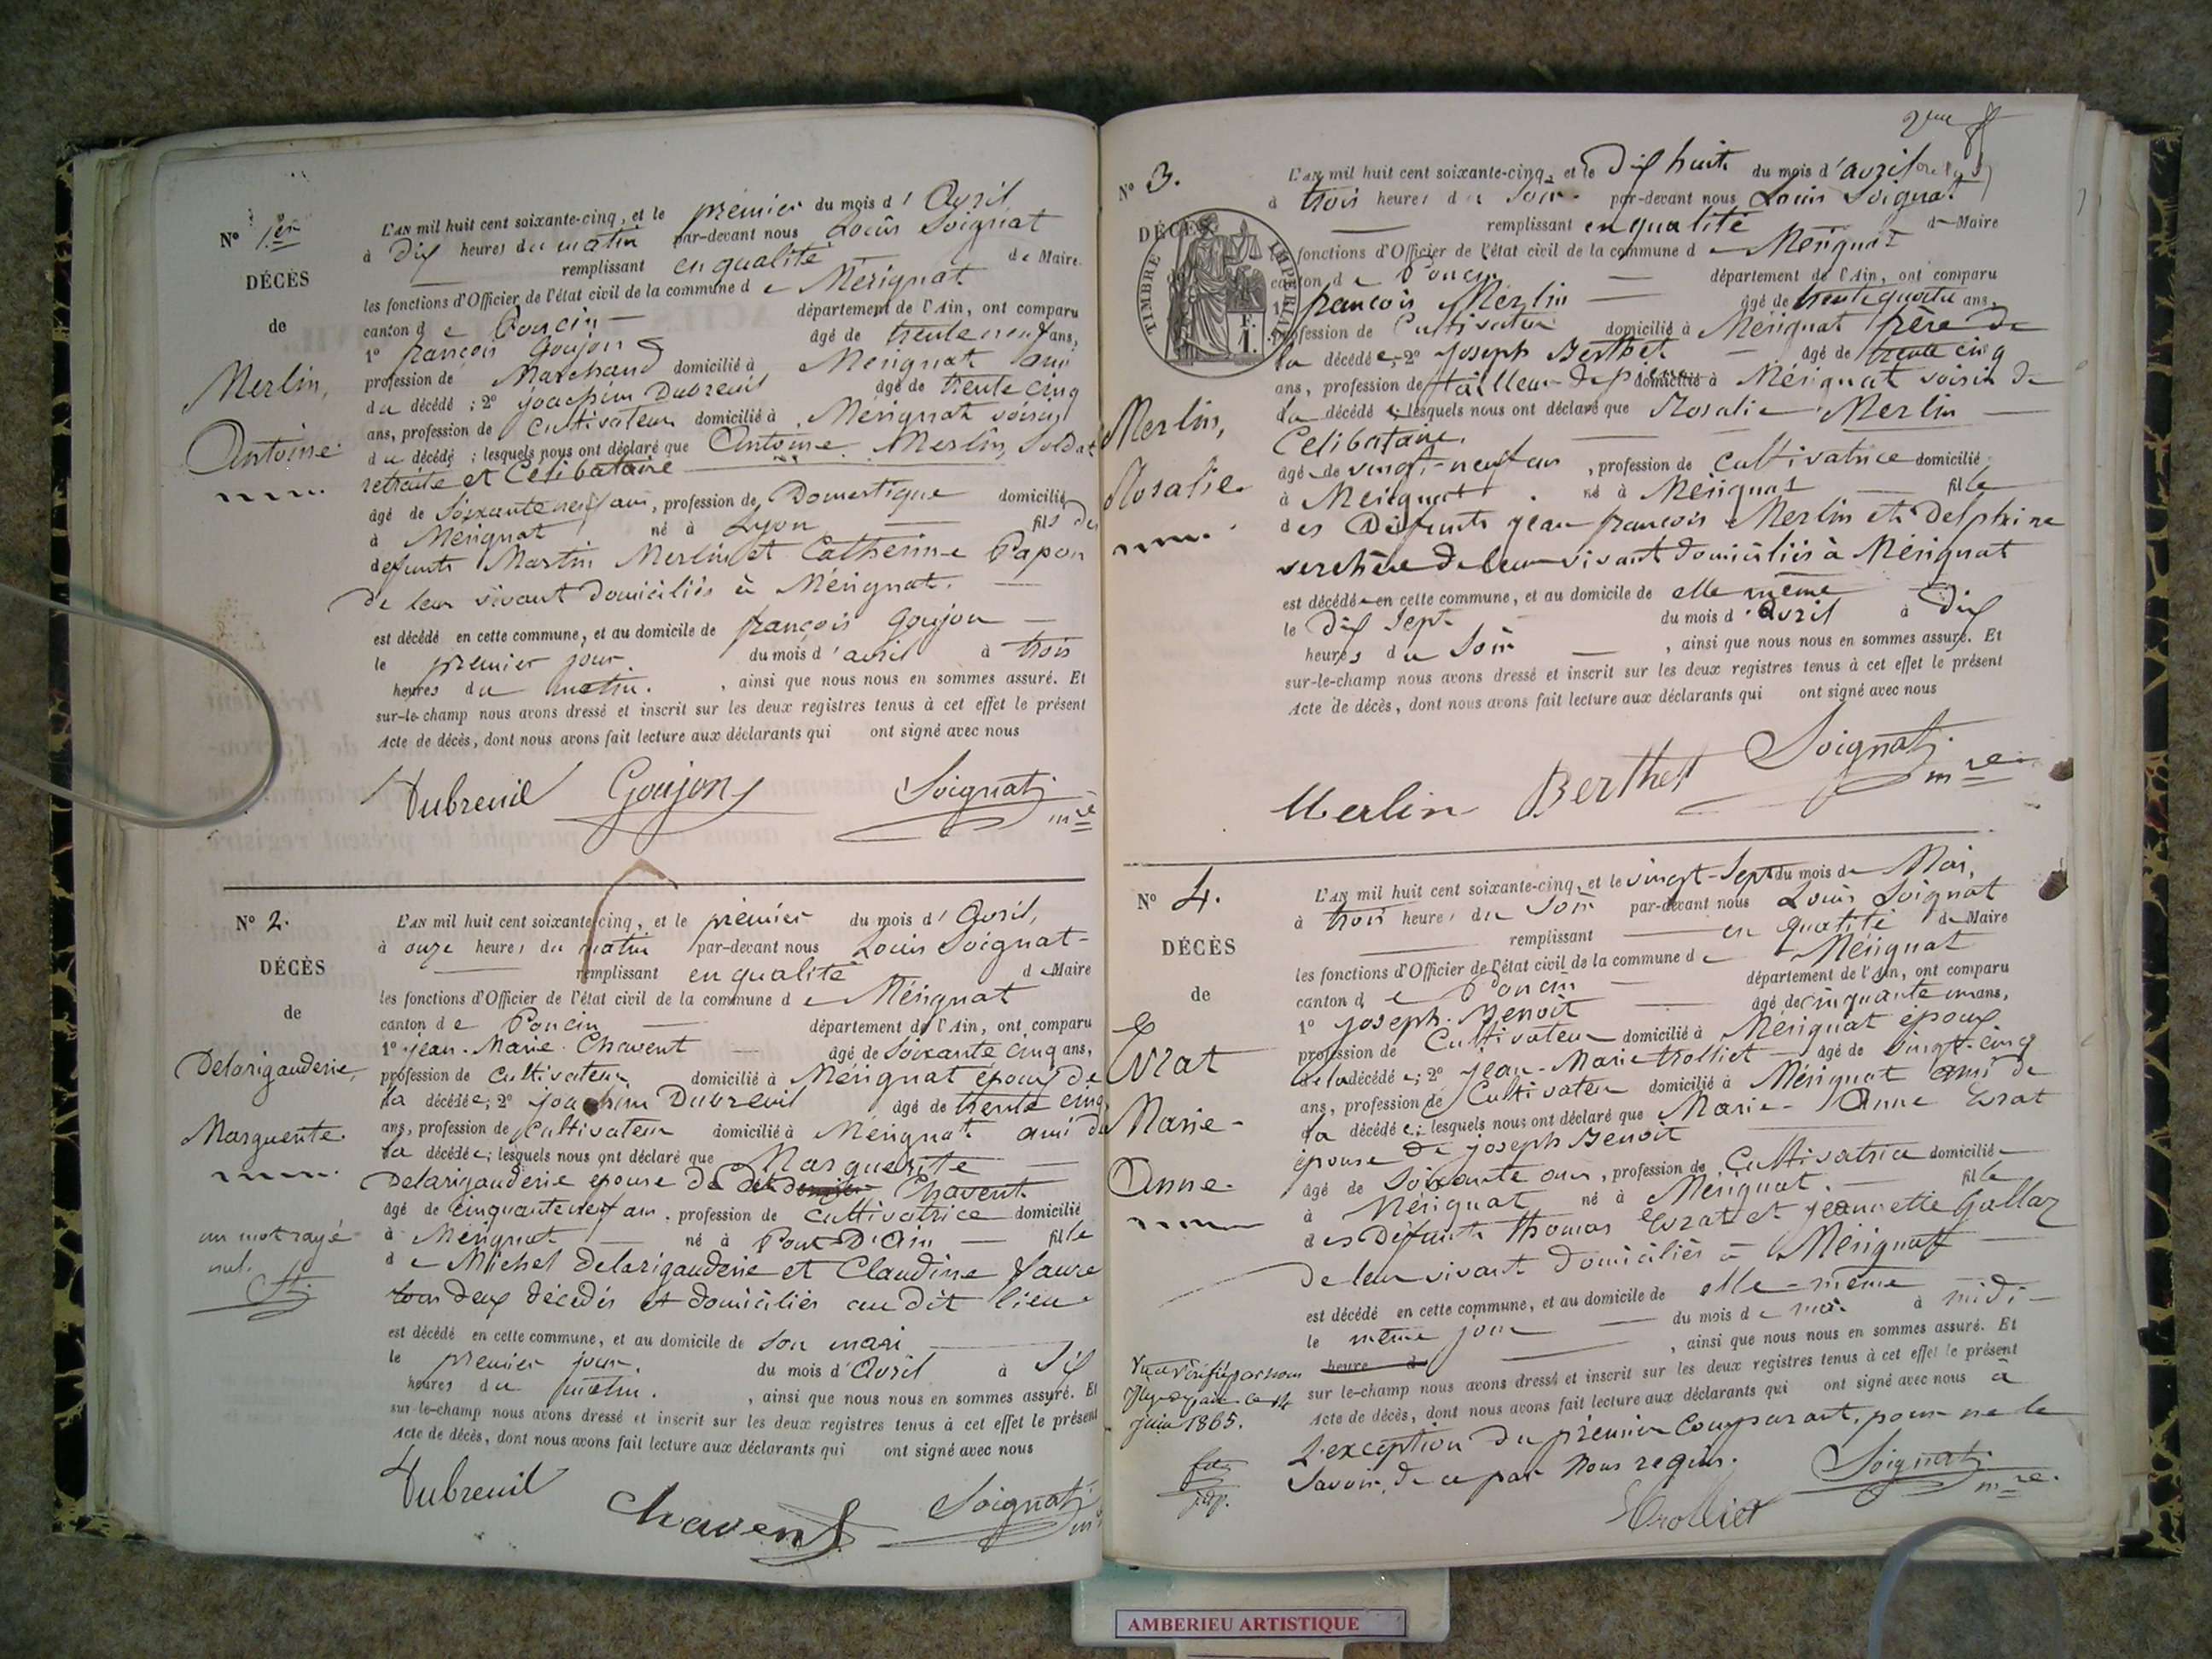 N° 1er
DÉCÈS
de
Merlin,
Antoine
L'AN mil huit cent soixante-cinq, et le premier du mois d'Avril
à Dix heures du matin par-devant nous Louis Soignat
remplissant en qualité de Maire
les fonctions d'Officier de l'état civil de la commune de Mérignat
canton de Poncin département de l'Ain, ont comparu
1° françois Goujon âgé de trente neuf ans,
profession de Marchand domicilié à Mérignat ami
du décédé ; 2° joachim Dubreuil âgé de trente cinq
ans, profession de Cultivateur domicilié à Mérignat voisin
du décédé ; lesquels nous ont déclaré que Antoine Merlin, Soldat
retraité et Célibataire
âgé de Soixante neuf ans, profession de Domestique domicilié
à Mérignat né à Lyon fils des
defunts Martin Merlin et Catherine Papon
de leur vivant domiciliés à Mérignat.
est décédé en cette commune, et au domicile de françois Goujon
le premier jour du mois d'avril à trois
heures du matin. , ainsi que nous nous en sommes assuré. Et
sur-le-champ nous avons dressé et inscrit sur les deux registres tenus à cet effet le présent
Acte de décès, dont nous avons fait lecture aux déclarants qui ont signé avec nous
Dubreuil Goujon Soignat
mre
N° 2.
DÉCÈS
de
Delarigauderie,
Marguerite
un mot rayé
nul.
L'AN mil huit cent soixante-cinq, et le premier du mois d'Avril,
à onze heures du matin par-devant nous Louis Soignat
remplissant en qualité de Maire
les fonctions d'Officier de l'état civil de la commune de Mérignat
canton de Poncin département de l'Ain, ont comparu
1° jean-Marie Chavent âgé de Soixante cinq ans,
profession de Cultivateur domicilié à Mérignat époux de
la décédée; 2° joachim Dubreuil âgé de trente cinq
ans, profession de Cultivateur domicilié à Mérignat ami de
la décédée; lesquels nous ont déclaré que Marguerite
Delarigauderie épouse de dit Chavent
âgé de Cinquante neuf ans, profession de cultivatrice domicilié
à Mérignat né à Pont-D'Ain fille
de Michel Delarigauderie et Claudine faure
tous deux décédés et domiciliés au dit lieu
est décédé en cette commune, et au domicile de son mari
le premier jour. du mois d'Avril à Dix
heures du matin. , ainsi que nous nous en sommes assuré. Et
sur-le-champ nous avons dressé et inscrit sur les deux registres tenus à cet effet le présent
Acte de décès, dont nous avons fait lecture aux déclarants qui ont signé avec nous
Dubreuil Chavent Soignat
2me
N° 3.
DÉCÈS
TIMBRE IMPERIAL
1 F.
Merlin,
Rosalie
L'AN mil huit cent soixante-cinq, et le Dix huit du mois d'avril
à trois heures du Soir par-devant nous Louis Soignat
remplissant en qualité de Maire
fonctions d'Officier de l'état civil de la commune de Mérignat
canton de Poncin département de l'Ain, ont comparu
1° françois Merlin âgé de trente quatre ans,
profession de Cultivateur domicilié à Mérignat frère de
la décédée; 2° Joseph Berthet âgé de trente cinq
ans, profession de tailleur de pierre domicilié à Mérignat voisin de
la décédée; lesquels nous ont déclaré que Rosalie Merlin
Célibataire.
âgé de vingt-neuf ans, profession de Cultivatrice domicilié
à Mérignat né à Mérignat fille
des Défunts jean françois Merlin et Delphine
verchère de leur vivant domiciliés à Mérignat
est décédée en cette commune, et au domicile de elle même
le Dix sept du mois d'Avril à Dix
heures du Soir , ainsi que nous nous en sommes assuré. Et
sur-le-champ nous avons dressé et inscrit sur les deux registres tenus à cet effet le présent
Acte de décès, dont nous avons fait lecture aux déclarants qui ont signé avec nous
Merlin Berthet Soignat
mre
N° 4.
DÉCÈS
de
Evrat
Marie-
Anne
Vu et vérifié par nous
juin 1865.
L'AN mil huit cent soixante-cinq, et le vingt-Sept du mois de Mai,
à trois heures du Soir par-devant nous Louis Soignat
remplissant en qualité de Maire
les fonctions d'Officier de l'état civil de la commune de Mérignat
canton de Poncin département de l'Ain, ont comparu
1° joseph Benoit âgé de cinquante un ans,
profession de Cultivateur domicilié à Mérignat époux
de la décédée; 2° jean-Marie trolliet âgé de vingt-cinq
ans, profession de Cultivateur domicilié à Mérignat ami de
la décédée; lesquels nous ont déclaré que Marie-Anne Evrat
épouse de joseph Benoit
âgé de Soixante ans, profession de Cultivatrice domicilié
à Mérignat né à Mérignat. fille
des Défunts thomas Evrat et jeannette Gallaz
de leur vivant domiciliés à Mérignat
est décédé en cette commune, et au domicile de elle-même
le même jour du mois de mai à midi
heure d , ainsi que nous nous en sommes assuré. Et
sur le-champ nous avons dressé et inscrit sur les deux registres tenus à cet effet le présent
Acte de décès, dont nous avons fait lecture aux déclarants qui ont signé avec nous à
L'exception du premier Comparant, pour ne le
Savoir, de ce par Nous requis.
Trolliet Soignat
mre.
AMBERIEU ARTISTIQUE